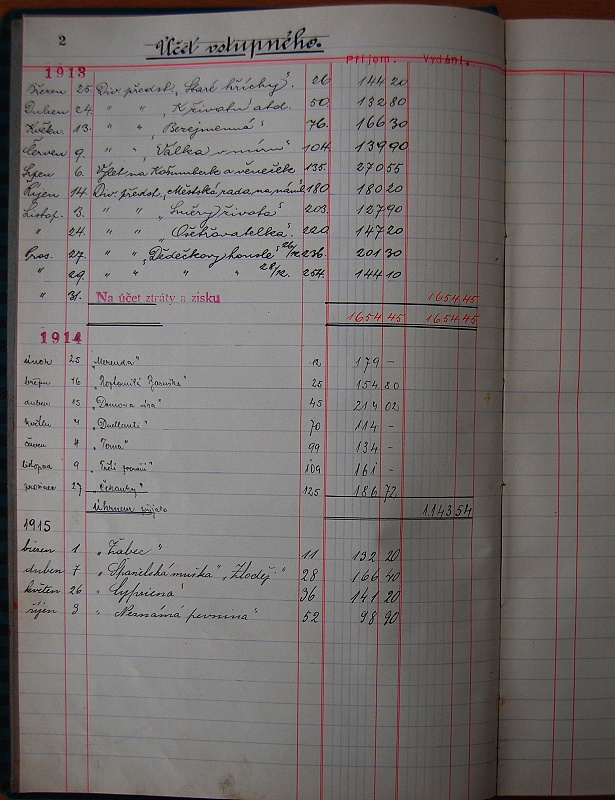 2 Účet vstupného.
Příjem. Vydání.
1913
Březen 25. Div. předst. „Staré hříchy“. 26 144 20
Duben 24. " " „Křivoln atd. 50 132 80
Květen. 13. " " „Bezejmenná“ 76. 166 30
Červen 9. " " „Válka v míru“ 104. 139 90
Srpen 6. Výlet na Košumberk a věneček 135. 270 55
Říjen 14. Div. předst. „Městská rada na 180 180 20
Listop. 3. " " „Směry života“ 203. 127 90
" 24. " " „Ošetřovatelka“. 220 147 20
Pros. 27. " " „Dědečkovy housle“ 26/12 236. 201 30
" 29 " " " " 28/12. 254. 144 10
" 31. Na účet ztráty a zisku 1654 45
1654 45 1654 45
1914
únor 25 „Meranda“ 12 179 -
březen 16 „Roztomilá Baruška“ 25 154 80
duben 15 „Domova 45 213 02
květen 70 114 -
červen 99 134 -
listopad 9 „Třetí 109 161 -
prosinec 27 „Čekanky“ 125 186 72
Úhrnem přijato 1143 54
1915
březen 1 „Žabec“ 11 132 20
duben 7 „Španělská muška“ „Zloděj“ 28 166 40
květen 26 „Cyprienna“ 36 141 20
říjen 3 „Neznámá pevnina“ 52 98 90